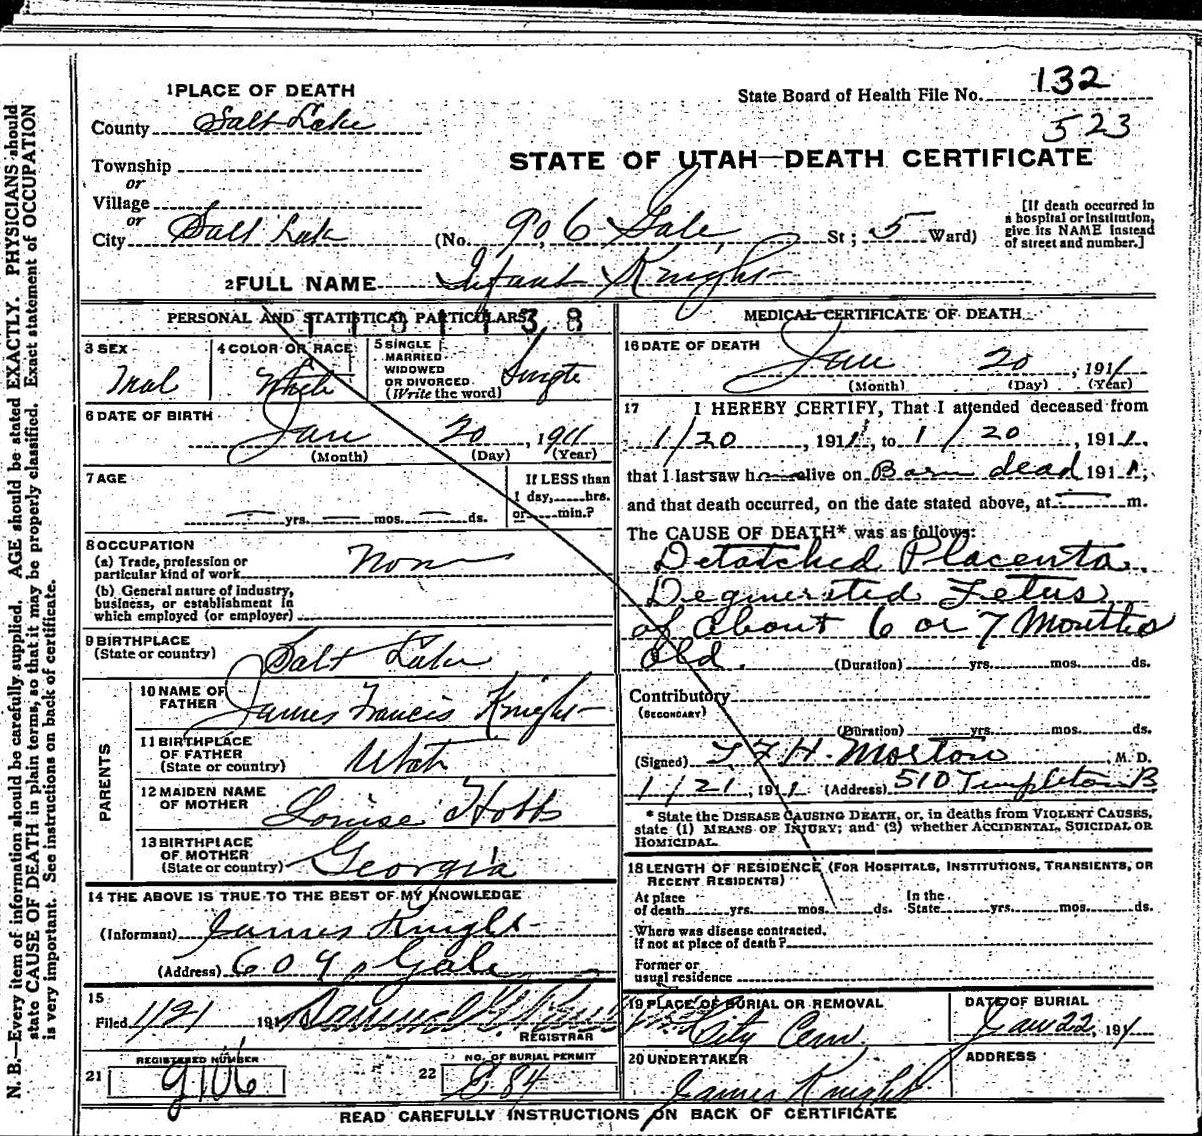 1 PLACE OF DEATH
State Board of Health File No. 132
County Salt Lake
523
Township
STATE OF UTAH—DEATH CERTIFICATE
or
Village
or
City Salt Lake (No. 906 Gale St; 5 Ward)
[If death occurred in
a hospital or institution,
give its NAME instead
of street and number.]
2 FULL NAME Infant Knight
PERSONAL AND STATISTICAL PARTICULARS
3 SEX Mal
4 COLOR OR RACE White
5 SINGLE
MARRIED
WIDOWED
OR DIVORCED
(Write the word) Single
6 DATE OF BIRTH
Jan 20, 1911
(Month) (Day) (Year)
7 AGE
— yrs. — mos. — ds.
If LESS than
1 day, hrs.
or min.?
8 OCCUPATION
(a) Trade, profession or
particular kind of work Non
(b) General nature of industry,
business, or establishment in
which employed (or employer)
9 BIRTHPLACE
(State or country) Salt Lake
PARENTS
10 NAME OF
FATHER James Francis Knight
11 BIRTHPLACE
OF FATHER
(State or country) Utah
12 MAIDEN NAME
OF MOTHER Louise Hobbs
13 BIRTHPLACE
OF MOTHER
(State or country) Georgia
14 THE ABOVE IS TRUE TO THE BEST OF MY KNOWLEDGE
(Informant) James Knight
(Address) Gale
15
Filed 1/21 191 Samuel G.
REGISTRAR
REGISTERED NUMBER
21 9106
NO. OF BURIAL PERMIT
22 84
MEDICAL CERTIFICATE OF DEATH
16 DATE OF DEATH
Jan 20, 1911
(Month) (Day) (Year)
17 I HEREBY CERTIFY, That I attended deceased from
1/20, 1911, to 1/20, 1911.
that I last saw h alive on Born dead 1911,
and that death occurred, on the date stated above, at — m.
The CAUSE OF DEATH* was as follows:
Detatched Placenta.
Degenerated Fetus
of about 6 or 7 Months
old. (Duration) yrs. mos. ds.
Contributory
(SECONDARY)
(Duration) yrs. mos. ds.
(Signed) T. F. H. Morton, M. D.
1/21, 1911 (Address) 510 Templeton B
* State the DISEASE CAUSING DEATH, or, in deaths from VIOLENT CAUSES,
state (1) MEANS OF INJURY; and (2) whether ACCIDENTAL, SUICIDAL OR
HOMICIDAL.
18 LENGTH OF RESIDENCE (FOR HOSPITALS, INSTITUTIONS, TRANSIENTS, OR
RECENT RESIDENTS)
At place
of death yrs. mos. ds.
In the
State yrs. mos. ds.
Where was disease contracted,
if not at place of death?
Former or
usual residence
19 PLACE OF BURIAL OR REMOVAL
City Cem
DATE OF BURIAL
Jan 22, 191
20 UNDERTAKER
James Knight
ADDRESS
READ CAREFULLY INSTRUCTIONS ON BACK OF CERTIFICATE
N. B.—Every item of information should be carefully supplied. AGE should be stated EXACTLY. PHYSICIANS should
state CAUSE OF DEATH in plain terms, so that it may be properly classified. Exact statement of OCCUPATION
is very important. See instructions on back of certificate.